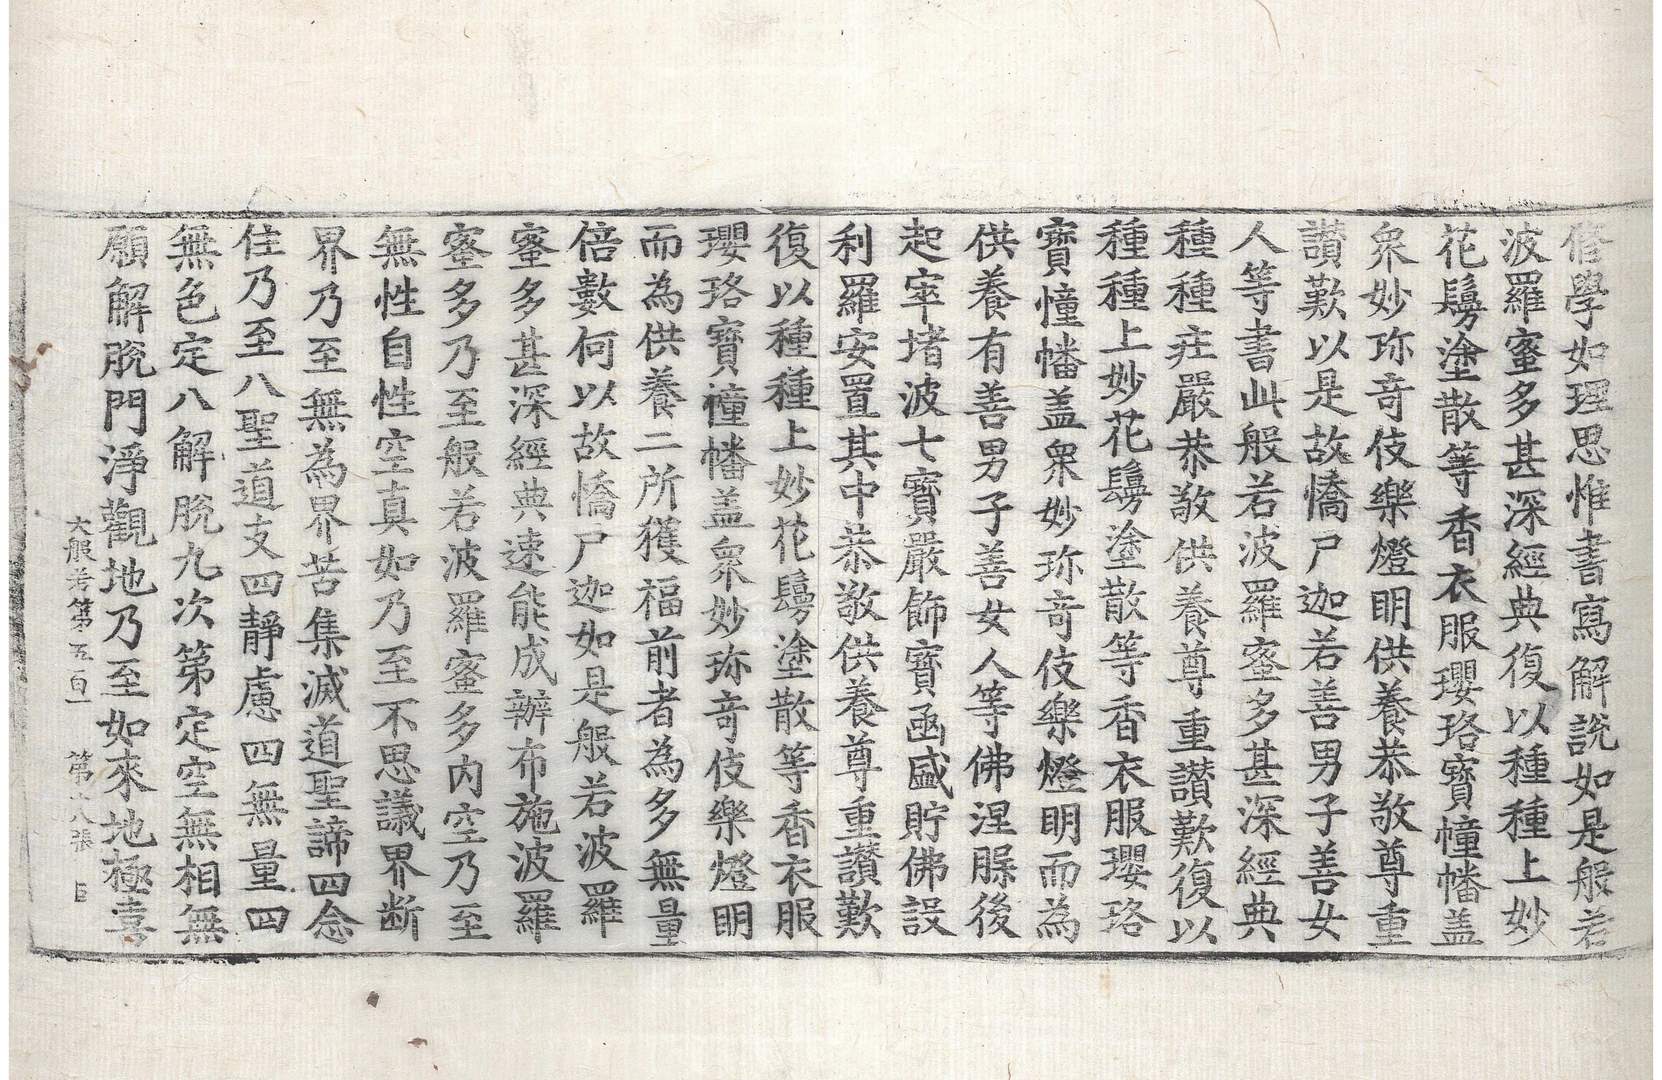 修學如理思惟書寫解說如是般若
波羅蜜多甚深經典復以種種上妙
花鬘塗散等香衣服瓔珞寶幢幡盖
衆妙珎奇伎樂燈明供養恭敬尊重
讃歎以是故憍尸迦若善男子善女
人等書此般若波羅蜜多甚深經典
種種莊嚴恭敬供養尊重讃歎復以
種種上妙花鬘塗散等香衣服瓔珞
寶幢幡盖衆妙珎奇伎樂燈明而為
供養有善男子善女人等佛涅槃後
起窣堵波七寶嚴飾寶函盛貯佛設
利羅安置其中恭敬供養尊重讃歎
復以種種上妙花鬘塗散等香衣服
瓔珞寶幢幡盖衆妙珎奇伎樂燈明
而為供養二所獲福前者為多無量
倍數何以故憍尸迦如是般若波羅
蜜多甚深經典速能成辦布施波羅
蜜多乃至般若波羅蜜多內空乃至
無性自性空真如乃至不思議界断
界乃至無為界苦集滅道聖諦四念
住乃至八聖道支四靜慮四無量四
無色定八解脫九次第定空無相無
願解脫門淨觀地乃至如來地極喜
大般若第五百一 第六張